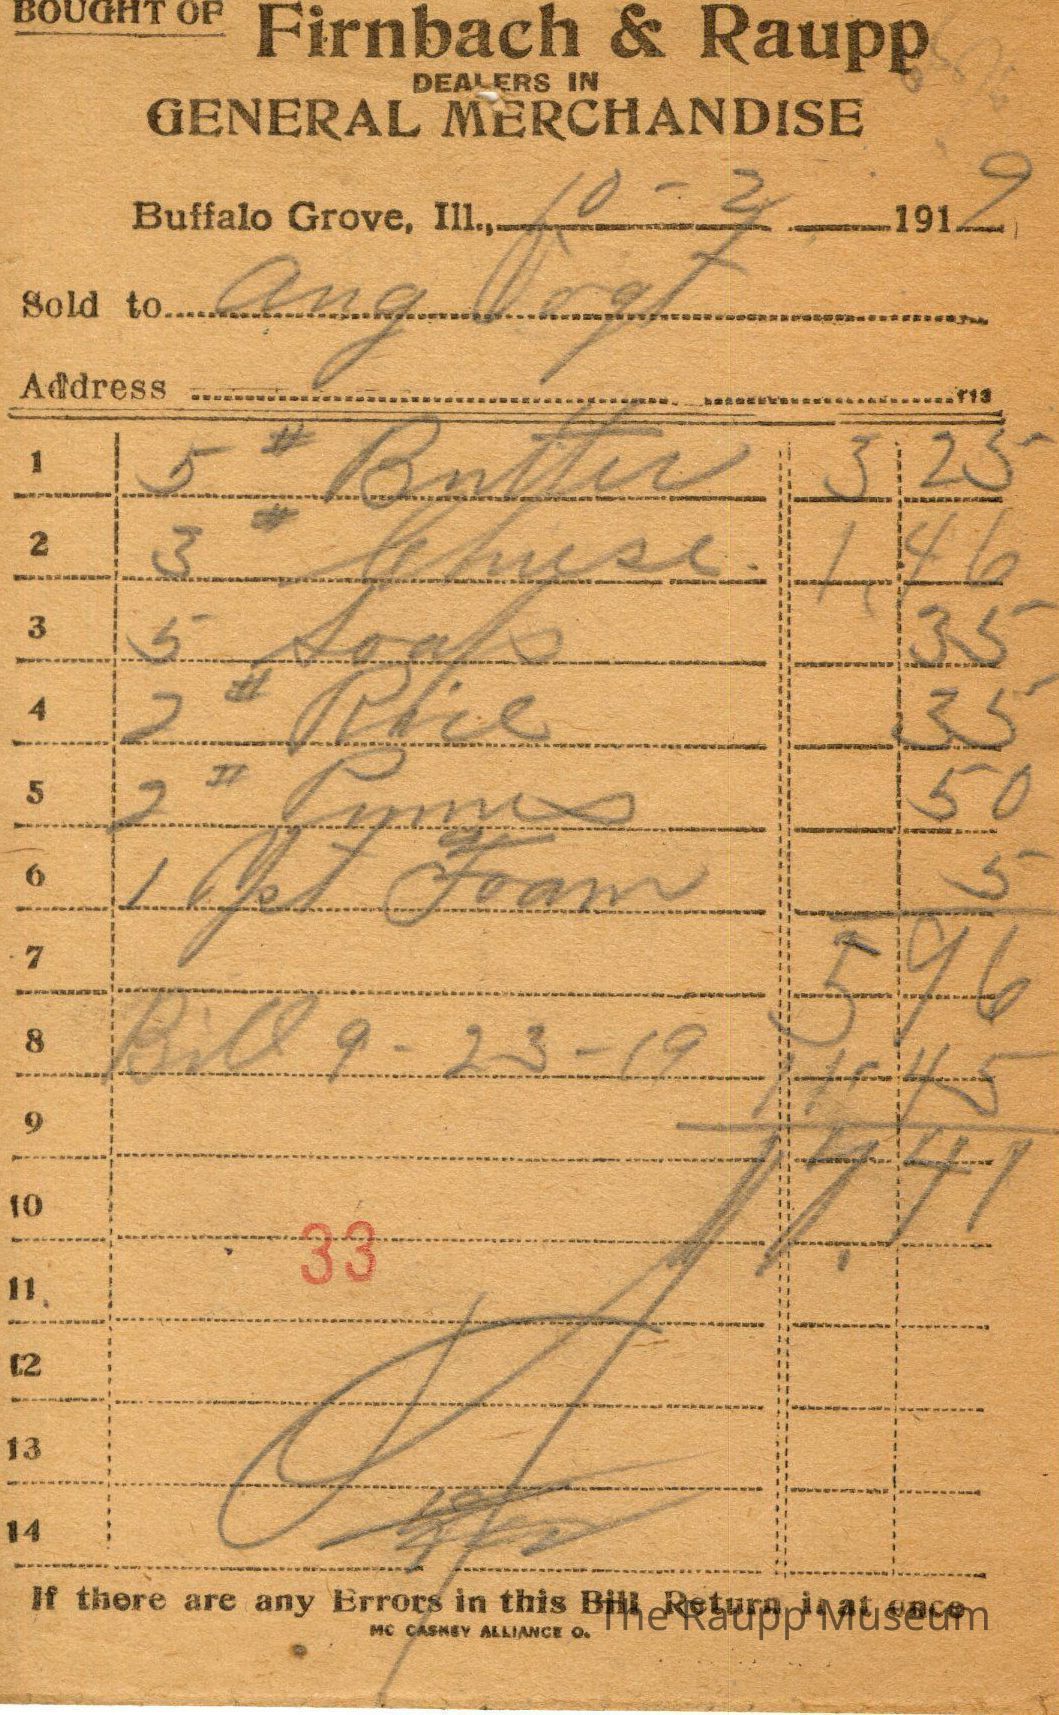 BOUGHT OF Firnbach & Raupp
DEALERS IN
GENERAL MERCHANDISE
Buffalo Grove, Ill., 10-2 1919
Sold to Aug Vogt
Address
1 5 # Butter 3 25
2 3 # Cheese. 1,46
3 5 Soaps 35
4 2 # Rice 35
5 2 # Prunes 50
6 1 Yst Foam 5
7 5 96
8 Bill 9-23-19 11.45
9 17.41
10
33
11
12
13
14
If there are any Errors in this Bill Return it at once
The Raupp Museum
MC CASKEY ALLIANCE O.